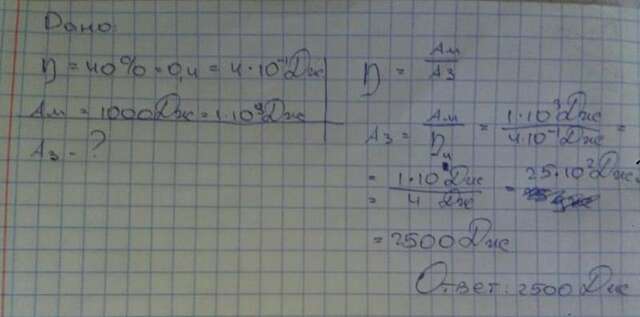 Дано
η = 40% = 0,4 = 4·10⁻¹ Дж
Aм = 1000 Дж = 1·10³ Дж
Aз - ?
η = Aм/Aз
Aз = Aм/η = 1·10³ Дж/4·10⁻¹ Дж =
= 1·10⁴ Дж/4 Дж = 25·10² Дж
= 2500 Дж
Ответ: 2500 Дж